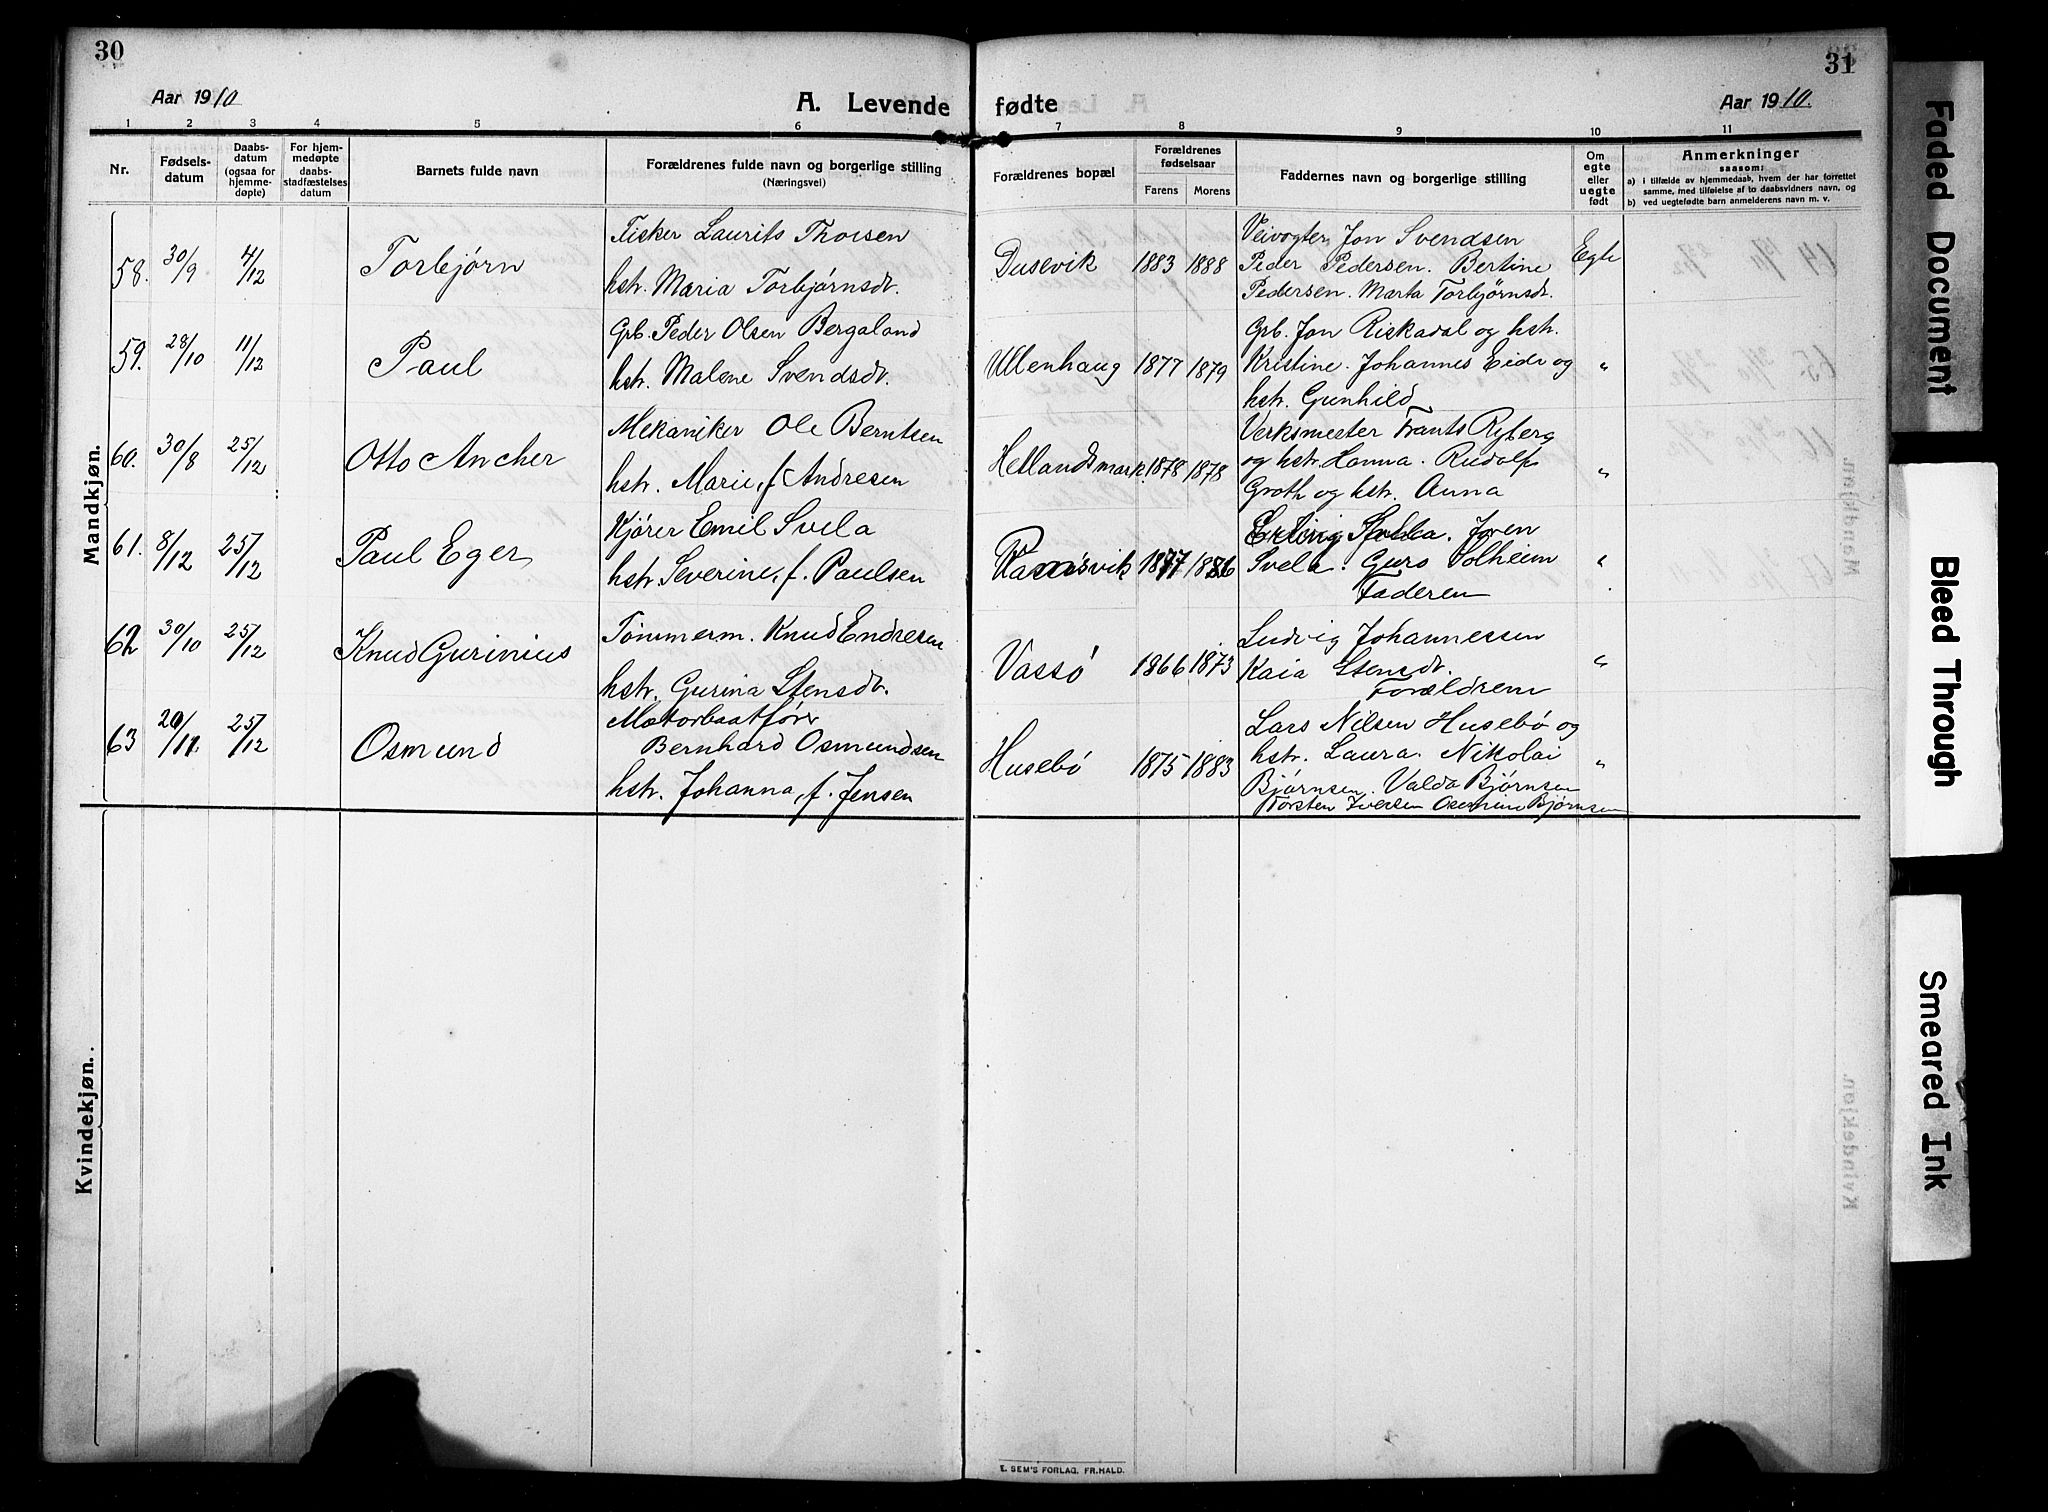 30
Aar 1910
A. Levende
fødte
31
Aar 1910.
1 2 3 4 5 6 7 8 9 10 11
Nr.
Fødselsdatum
Daabsdatum (ogsaa for hjemmedøpte)
For hjemmedøpte daabsstadfæstelses datum
Barnets fulde navn
Forældrenes fulde navn og borgerlige stilling
(Næringsvei)
Forældrenes bopæl
Forældrenes fødselsaar
Farens Morens
Faddernes navn og borgerlige stilling
Om egte eller uegte født
Anmerkninger
saasom:
a) i tilfælde av hjemmedaab, hvem der har forrettet
samme, med tilføielse af to daabsvidners navn, og
b) ved uegtefødte barn anmelderens navn m. v.
Mandkjøn.
58. 30/9 4/12 Torbjørn
Fisker Laurits Thorsen
hstr. Maria Torbjørnsdt.
Dusevik 1883 1888
Veivogter Jon Svendsen
Peder Pedersen. Bertine
Pedersen. Marta Torbjørnsdt.
Egte
59. 28/10 11/12 Paul
Grb. Peder Olsen Bergaland
hstr. Malene Svendsdt.
Ullenhaug 1877 1879
Grb. Jon Riskadal og hstr.
Kristine. Johannes Eide og
hstr. Gunhild
"
60. 30/8 25/12 Otto Ancher
Mekaniker Ole Berntsen
hstr. Marie, f. Andresen
Hellandsmark. 1878 1878
Verksmester Frants Ryberg
og hstr. Hanna. Rudolf
Groth og hstr. Anna
"
61. 8/12 25/12 Paul Eger
Kjører Emil Svela
hstr. Severine, f. Paulsen
Ramsvik 1877 1886
Svela. Iven
Svela. Guro Solheim
Faderen
"
62 30/10 25/12 Knud Gurinius
Tømmerm. Knud Endresen
hstr. Gurina Stensdt.
Vassø 1866 1873
Ludvig Johannessen
Kaia Stensdt.
Forældrene
"
63 20/11. 25/12 Osmund
Motorbaatfører
Bernhard Osmundsen
hstr. Johanna, f. Jensen
Husebø 1875 1883
Lars Nilsen Husebø og
hstr. Laura. Nikolai
Bjørnsen. Valda Bjørnsen
Torsten Iversen Osmund Bjørnsen
"
Kvindekjøn.
E. SEM'S FORLAG, FR.HALD.
Faded Document
Bleed Through
Smeared Ink